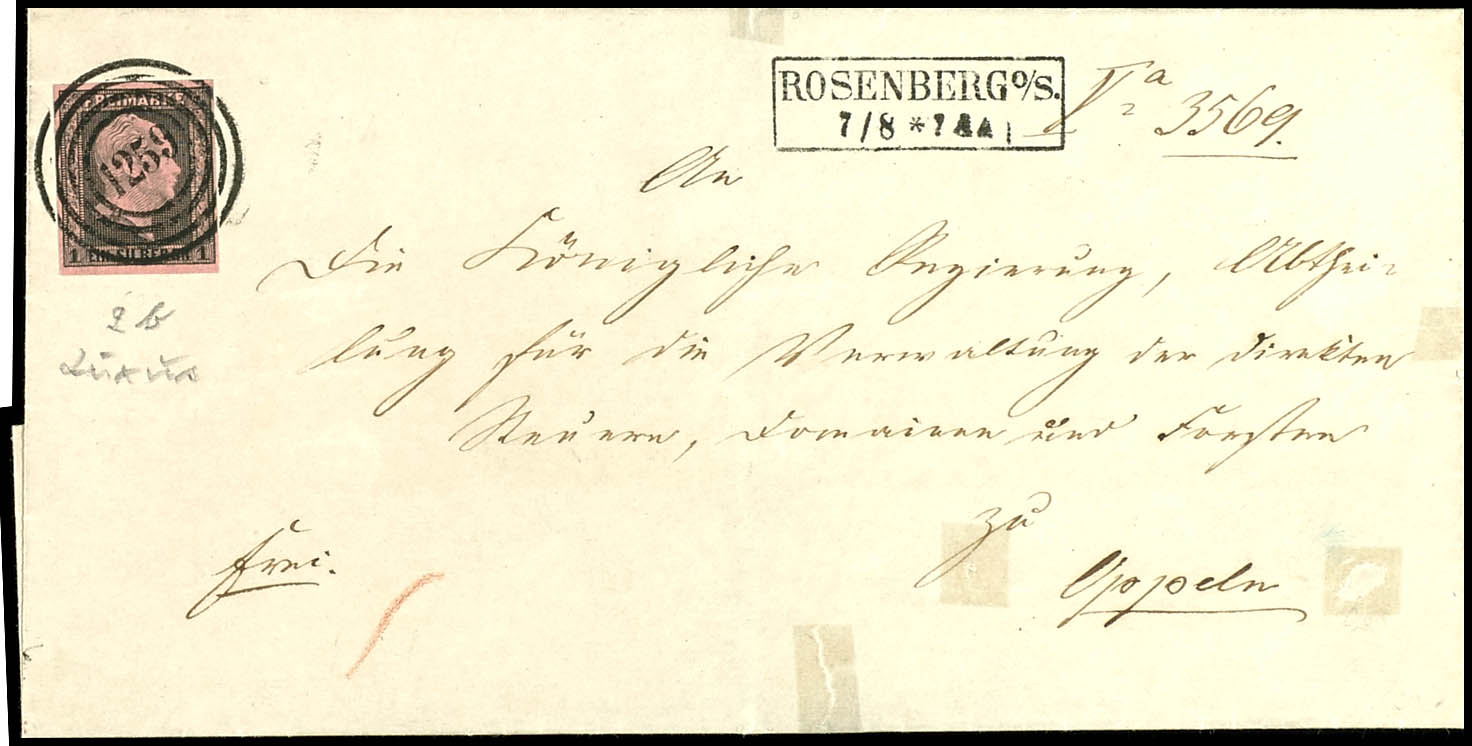 FREIMARKE
1259
1 EIN SILBERGR. 1
ROSENBERG O/S.
7/8 * 7
3569.
An
Die Königliche Regierung, Abthei-
lung für die Verwaltung der direkten
Steuern, Domainen und Forsten
zu
Oppeln
frei.
2 b
Luxus